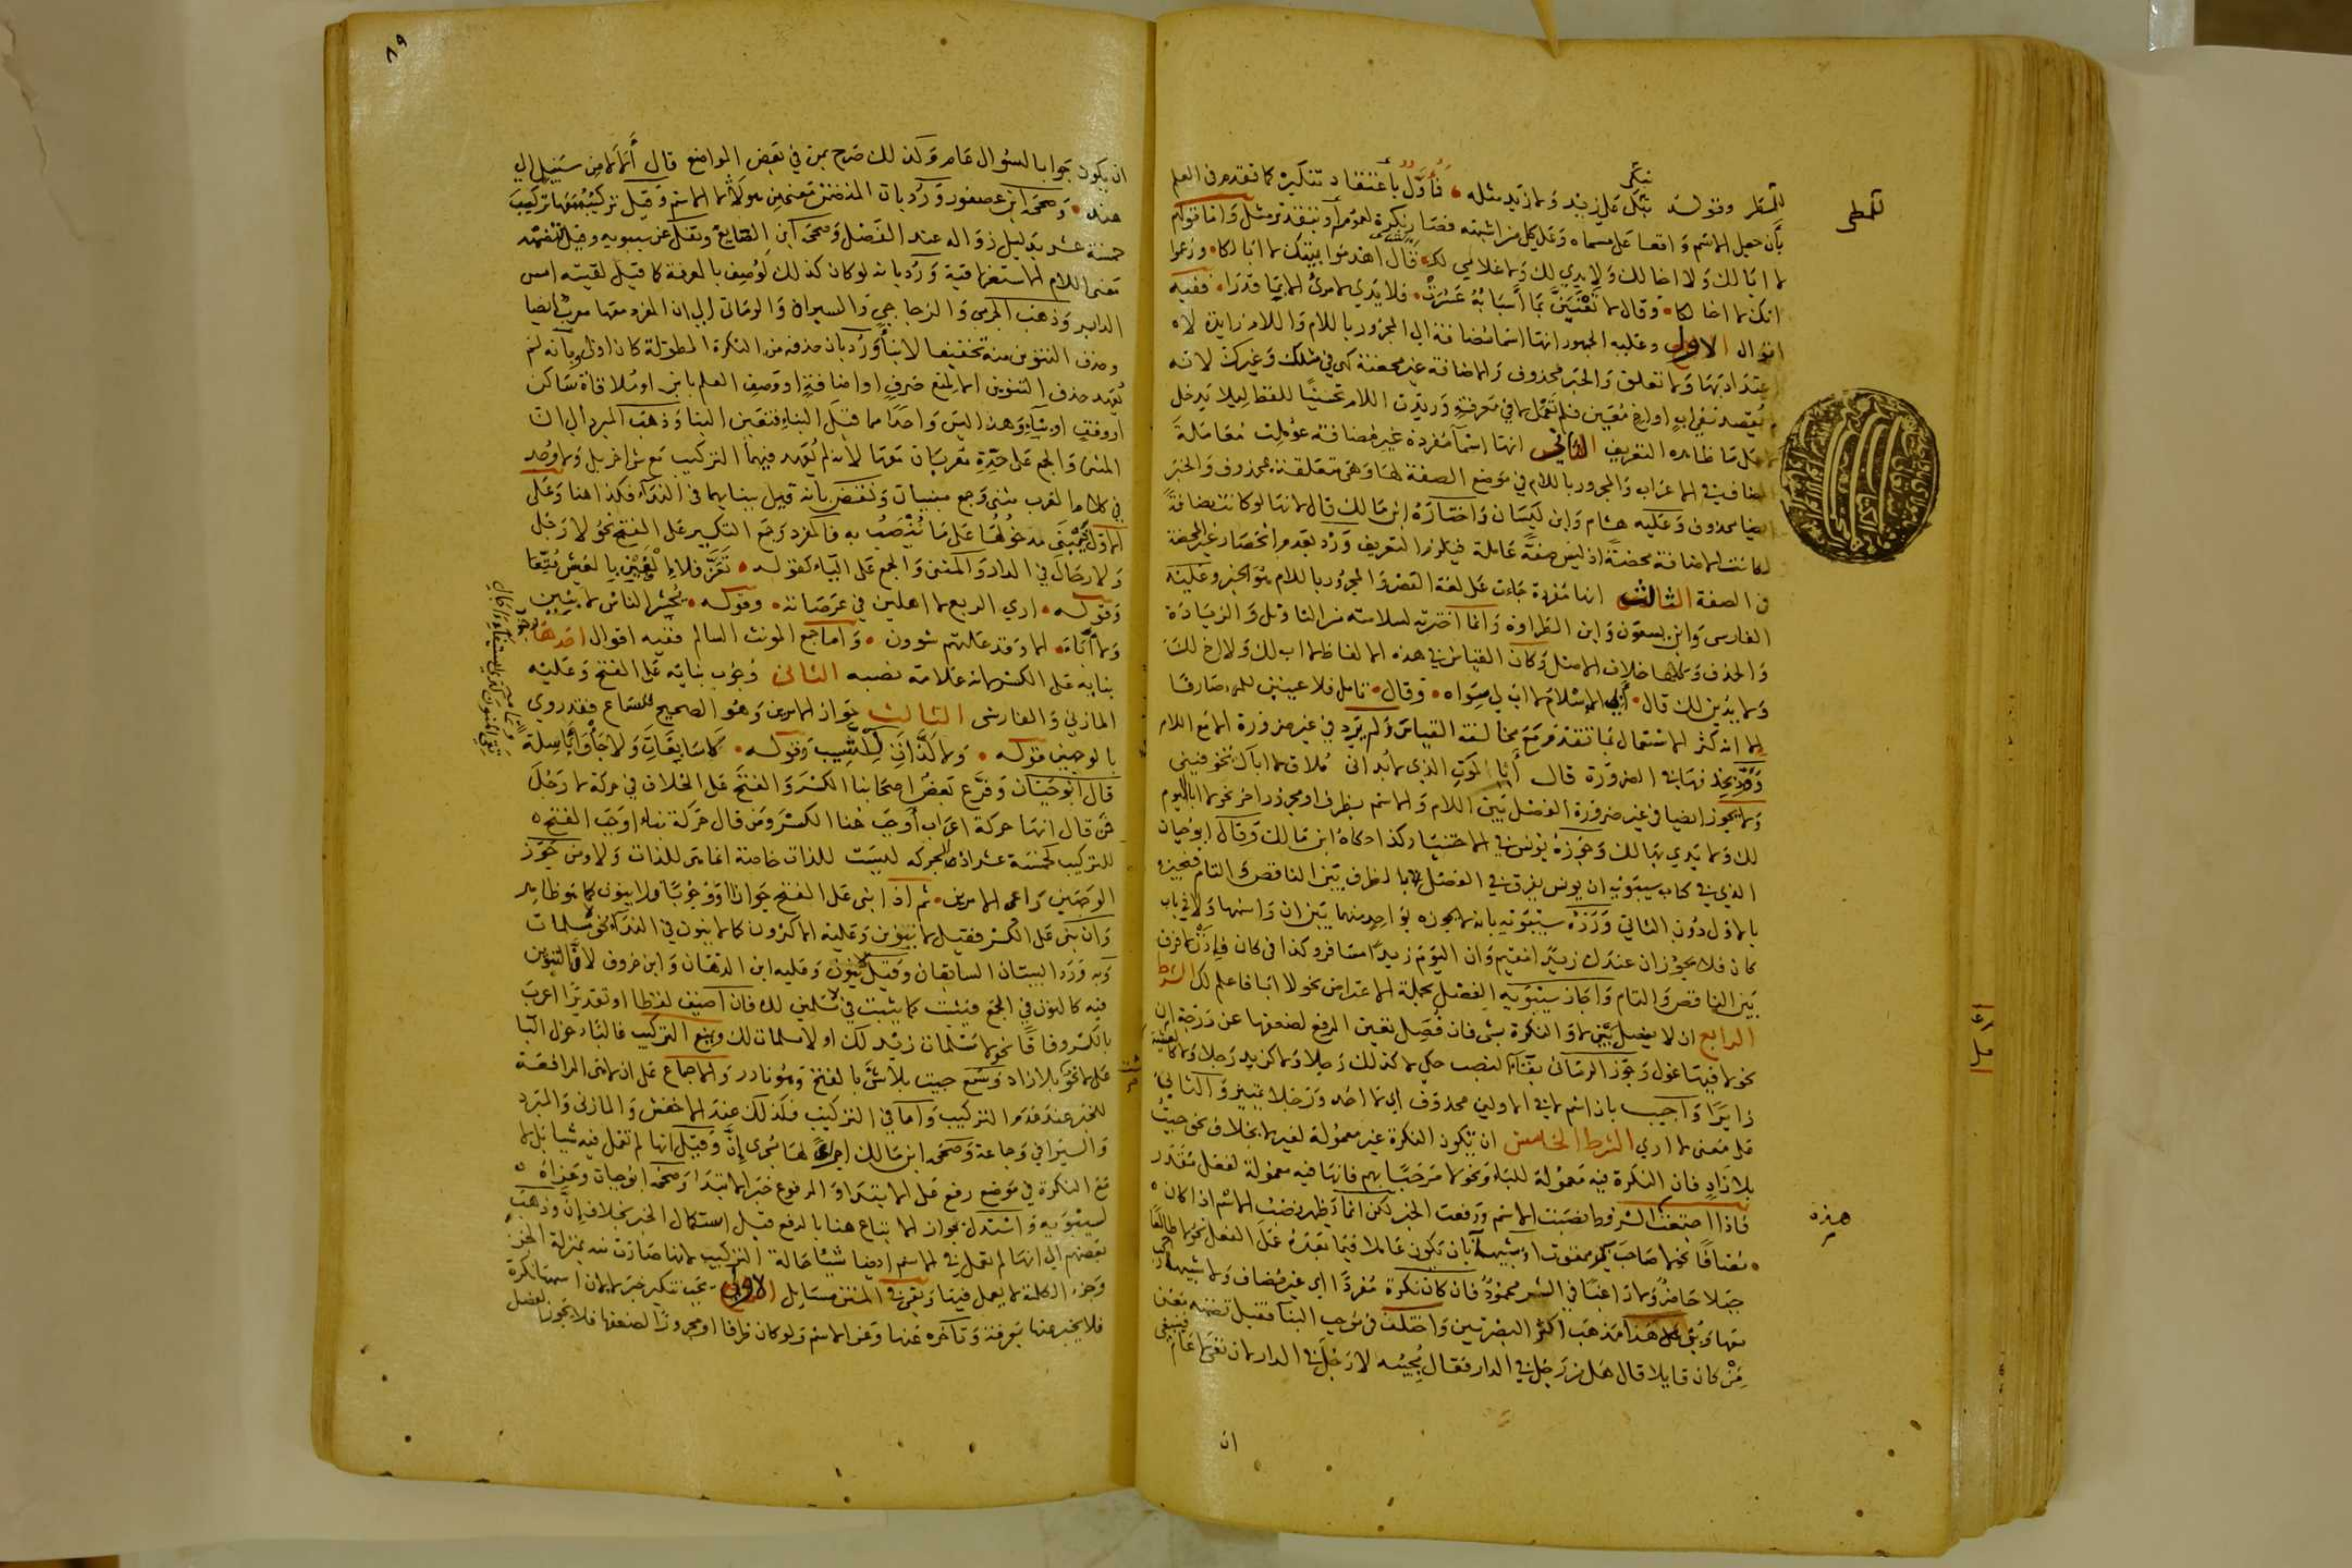 للمطر وقوله تبكي على زيد ولا زيد مثله فأول باعتقاد تنكيره كما تقدم في العلم
بأن جعل الاسم واقعا على مسماه وعلى كل من اشبهه فصار نكرة لعمومه أو بتقدير مثل واما قولهم
لا ابا لك ولا اخا لك ولا يدي لك ولا غلامي لك قال اهدموا بيتك لا ابا لكا وزعموا
انك لا اخا لكا وقال لا تعنين بما أسبابه عسرت فلا يدي لامرئ الا بما قدرا ففيه
اقوال الاول وعليه الجمهور انها اسما مضافة الى المجرور باللام واللام زايدة لا
اعتداد بها ولا تعلق والخبر محذوف والاضافة غير محضة كهي في مثلك وغيرك لانه
لم يقصد نفي اب او اخ معين فلم تعمل لا في معرفة وزيدت اللام تحسينا للفظ ليلا تدخل
لا على ما ظاهره التعريف الثاني انها اسما مفردة غير مضافة عوملت معاملة
المضاف في الاعراب والمجرور باللام في موضع الصفة لها وهي متعلقة بمحذوف والخبر
ايضا محذوف وعليه هشام وابن كيسان واختاره ابن مالك قال لانها لو كانت مضافة
لكانت الاضافة محضة اذ ليس صفة عاملة فيلزم التعريف ورد بعدم انحصار غير المحضة
في الصفة الثالث انها مفردة جاءت على لغة القصر والمجرور باللام هو الخبر وعليه
الفارسي وابن يسعون وابن الطراوة وانما اخترته لسلامته من التاويل والزيادة
والحذف وكلها خلاف الاصل وكان القياس في هذه الالفاظ لا اب لك ولا اخ لك
ولا يدين لك قال أبي الاسلام لا اب لي سواه وقال تامل فلا عينين للمرء صارفا
الا انه كثر الاستعمال بما تقدم مع مخالفة القياس ولم يرد في غير ضرورة الا مع اللام
وقد تحذف نها في الضرورة قال أبا الموت الذي لا بد اني ملاق لا اباك تخوفيني
ولا يجوز ايضا في غير ضرورة الفصل بين اللام والاسم بظرف او مجرور اخر نحو لا ابا اليوم
لك ولا يدي بها لك وجوزه يونس في الاختيار كذا حكاه ابن مالك وقال ابو حيان
الذي في كتاب سيبويه ان يونس يفرق في الفصل بالظرف بين الناقص والتام فيجيزه
بالاول دون الثاني ورده سيبويه بانه لا يجوز بواحد منهما بين ان واسمها ولا في باب
كان فلا يجوز ان عندك زيدا مقيم وان اليوم زيدا مسافر وكذا في كان فإذن لا فرق
بين الناقص والتام واجاز سيبويه الفصل بجملة الاعتراض نحو لا ابا فاعلم لك الشرط
الرابع ان لا يفصل بين لا والنكرة بشي فان فصل تعين الرفع لضعفها عن درجة ان
نحو لا فيها غول وجوز الرماني بقاء النصب حكي لا كذلك رجلا ولا كزيد رجلا ولا كالعشية
زايرا واجيب بان اسم لا في الاولين محذوف اي لا احد ورجلا تمييز والثاني
على معنى لا اري الشرط الخامس ان تكون النكرة غير معمولة لغير لا بخلاف نحو جيت
بلا زاد فان النكرة فيه معمولة للباء ونحو لا مرحبا بهم فانها فيه معمولة لفعل مقدر
فاذا اجتمعت الشروط نصبت الاسم ورفعت الخبر لكن انما يظهر نصب الاسم اذا كان
مضافا نحو لا صاحب بر ممقوت او شبيهه بان يكون عاملا فيما بعده عمل الفعل نحو لا طالعا
جبلا حاضر ولا راغبا في الشر محمود فان كان نكرة مفردا اي غير مضاف ولا شبيهه ركب
معها وبني على هذا مذهب اكثر البصريين واختلف في موجب البنا فقيل تضمنه معنى
من كان قايلا قال هل من رجل في الدار فقال مجيبه لا رجل في الدار لان نفيها عام فينبغي
ان
للمطر
هذه
٨٩
ان يكون جوابا لسؤال عام ولذلك صرح بمن في بعض المواضع قال ألا لا من سبيل الى
هند وصححه ابن عصفور ورد بان المتضمن معنى من هو لا لا الاسم وقيل تركيبه معها تركيب
خمسة عشر بدليل زواله عند الفصل وصححه ابن الضايع ونقل عن سيبويه وقيل تضمنه
معنى اللام الاستغراقية ورد بانه لو كان كذلك لوصف بالمعرفة كما قيل لقيته امس
الدابر وذهب الجرمي والزجاجي والسيرافي والرماني الى ان المفرد معها معرب ايضا
وحذف التنوين منه تخفيفا لا بناء ورد بان حذفه من النكرة المطولة كان اولى وبانه لم
يعهد حذف التنوين الا لمنع صرف او اضافة او وصف العلم بابن او ملاقاة ساكن
او وقف او بناء وهذا ليس واحدا مما قبل البناء فتعين البنا وذهب المبرد الى ان
المثنى والجمع على حده معربان معها لانه لم يعهد فيهما التركيب مع شي اخر بل ولا وجد
في كلام العرب مثنى وجمع مبنيان ونقض بانه قيل ببنايهما في النداء فكذا هنا وعلى
الاول يبنى مدخولها على ما ينصب به فالمفرد وجمع التكسير على الفتح نحو لا رجل
ولا رجال في الدار والمثنى والجمع على الياء كقوله تعز فلا إلفين بالعيش متعا
وقوله اري الربع لا اهلين في عرصاته وقوله يحشر الناس لا بنين
ولا آباء الا وقد عنتهم شوون واما جمع المونث السالم ففيه اقوال احدها وجوب
بنايه على الكسر لانه علامة نصبه الثاني وجوب بنايه على الفتح وعليه
المازني والفارسي الثالث جواز الامرين وهو الصحيح للسماع فقد روي
بالوجهين قوله ولا لذات للشيب وقوله لا سابغات ولا جأواء باسلة
قال ابو حيان وفرع بعض اصحابنا الكسر والفتح على الخلاف في حركة لا رجل
فمن قال انها حركة اعراب أوجب هنا الكسر ومن قال حركة بناء اوجب الفتح
للتركيب كخمسة عشر اذ الحركة ليست للذات خاصة انما هي للذات ولا ومن جوز
الوجهين راعى الامرين ثم اذا بني على الفتح جوازا او وجوبا فلا ينون كما هو ظاهر
وان بني على الكسر فقيل لا ينون وعليه الاكثرون كما لا ينون في النداء نحو يا مسلمات
وبه ورد البيتان السابقان وقيل ينون وعليه ابن الدهان وابن خروف لان التنوين
فيه كالنون في الجمع فيثبت كما يثبت في لا مسلمين لك فان اضيف لفظا او تقديرا اعرب
بالكسر وفاقا نحو لا مسلمات زيد لك او لا مسلمات لك ويمنع التركيب غالبا دخول البا
على لا نحو بلا زاد وسمع جيت بلا شي بالفتح وهو نادر والاجماع على ان لا هي الرافعة
للخبر عند عدم التركيب واما في التركيب فكذلك عند الاخفش والمازني والمبرد
والسيرافي وجماعة وصححه ابن مالك اجراء لها مجرى إن وقيل انها لم تعمل فيه شيا بل لا
مع النكرة في موضع رفع على الابتداء والمرفوع خبر المبتدا وصححه ابو حيان وعزاه
لسيبويه واستدل بجواز الاتباع هنا بالرفع قبل استكمال الخبر بخلاف إن وذهب
بعضهم الى انها لم تعمل في الاسم ايضا شيئا حالة التركيب لانها صارت منه بمنزلة الجزء
وجزء الكلمة لا يعمل فيها وبقي في المتن مسايل الاولى يجب تنكير خبر لا لان اسمها نكرة
فلا يخبر عنها بمعرفة وتاخره عنها وعن الاسم ولو كان ظرفا او مجرورا لضعفها فلا يجوز الفصل